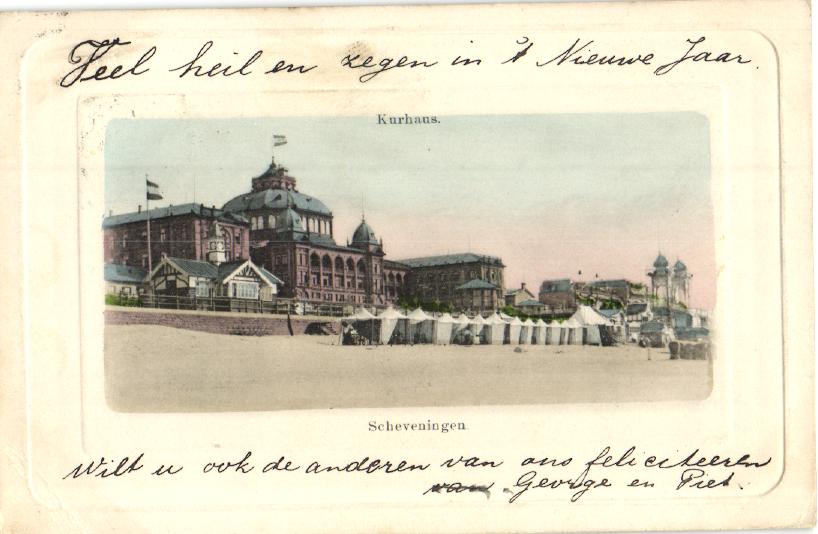 Veel heil en zegen in 't Nieuwe Jaar.
Kurhaus.
Scheveningen
Wilt u ook de anderen van ons feliciteeren
George en Piet.